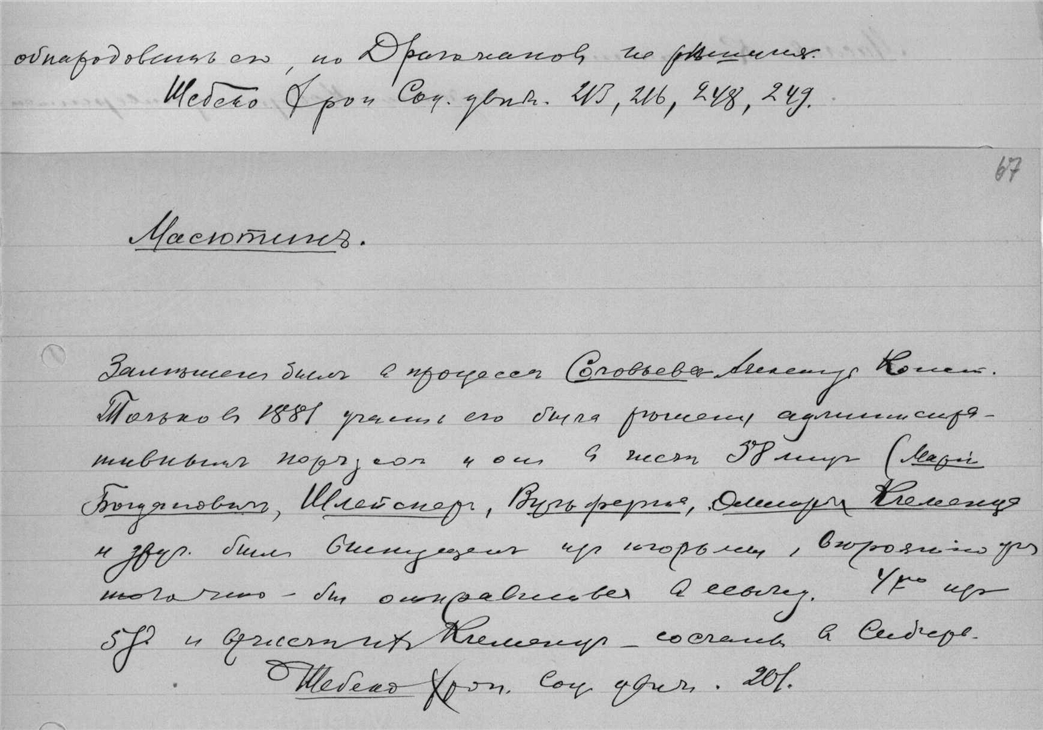 обнародовать его, но Драгоманов не решился.
Шебеко Хрон Соц. движ. 215, 216, 248, 249.
67
Масютинъ.
был в процессе Соловьева Александр Конст.
Только в 1881 участь его была решена администра-
тивным порядком и он в числе 38 лиц (Марія
Богдановичъ, Шлейснеръ, , Клеменца
и друг. был выпущен из тюрьмы, вероятно для
того чтоб отправиться в ссылку. из
и в числе их Клеменц – сосланы в Сибирь.
Шебеко Хрон. Соц движ. 201.